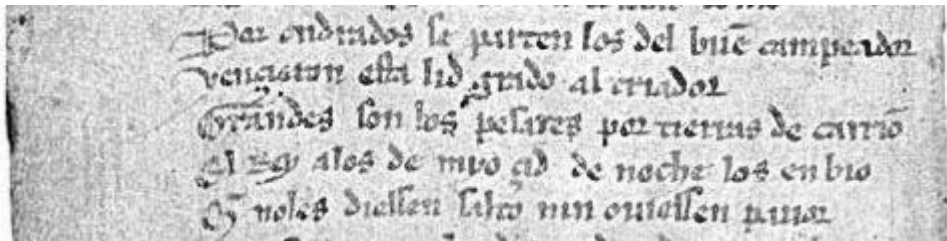 Por ondrados se parten los del buẽ campeador
vençieron esta lid grado al criador
Grandes son los pesares por tierras de carriõ
El Rey alos de myo çid de noche los en bio
Q̃ noles diessen salto nin ouiessen pauor